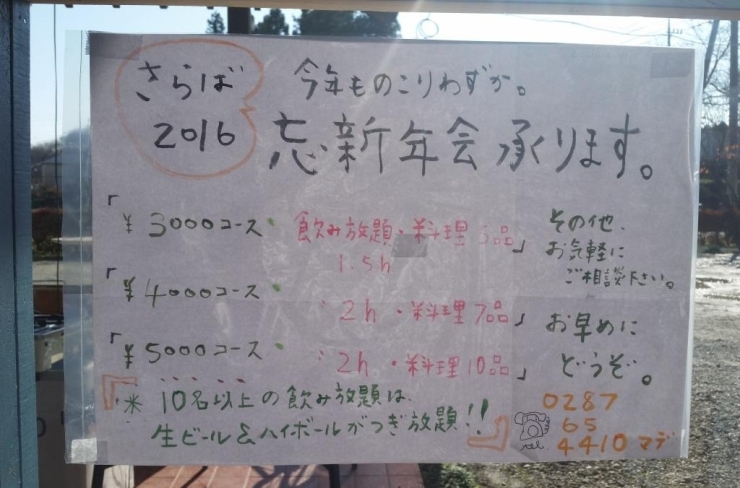 さらば
2016
今年ものこりわずか。
忘新年会承ります。
「¥3000コース・飲み放題・料理5品」
1.5h
「¥4000コース・〃2h・料理7品」
「¥5000コース・〃2h・料理10品」
その他、
お気軽に
ご相談下さい。
お早めに
どうぞ。
※10名以上の飲み放題は、
生ビール&ハイボールがつぎ放題!!
0287
65
4410マデ
tel